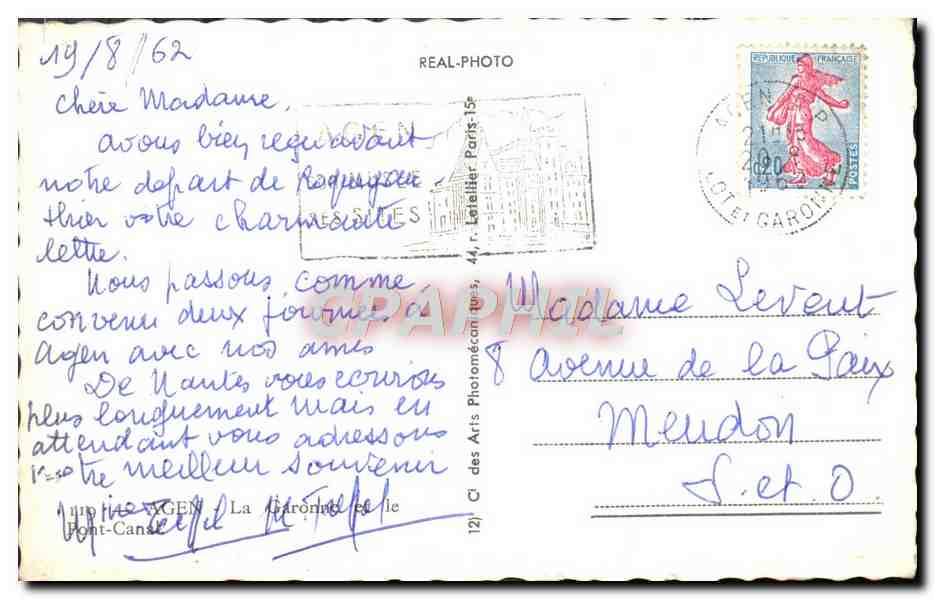 19/8/62
REAL-PHOTO
Chère Madame,
avons bien reçu avant
notre départ de
hier votre charmante
lettre.
Nous passons, comme
convenu deux journées à
Agen avec nos amis
De Nantes vous écrirons
plus longuement mais en
attendant vous adressons
notre meilleur souvenir
110 AGEN La Garonne et le
Pont-Canal
12) Cl des Arts Photomécaniques, 44, r. Letellier Paris-15e
AGEN
SES SITES
REPUBLIQUE FRANÇAISE
0,20
POSTES
LOT ET GARONNE
CPAPHIL
Madame Levent
8 Avenue de la Paix
Meudon
S. et O.